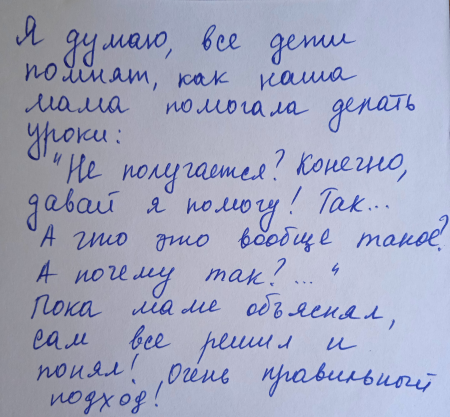 Я думаю, все дети
помнят, как наша
мама помогала делать
уроки:
"Не получается? Конечно,
давай я помогу! Так...
А что это вообще такое?
А почему так?..."
Пока маме объяснял,
сам все решил и
понял! Очень правильный
подход!